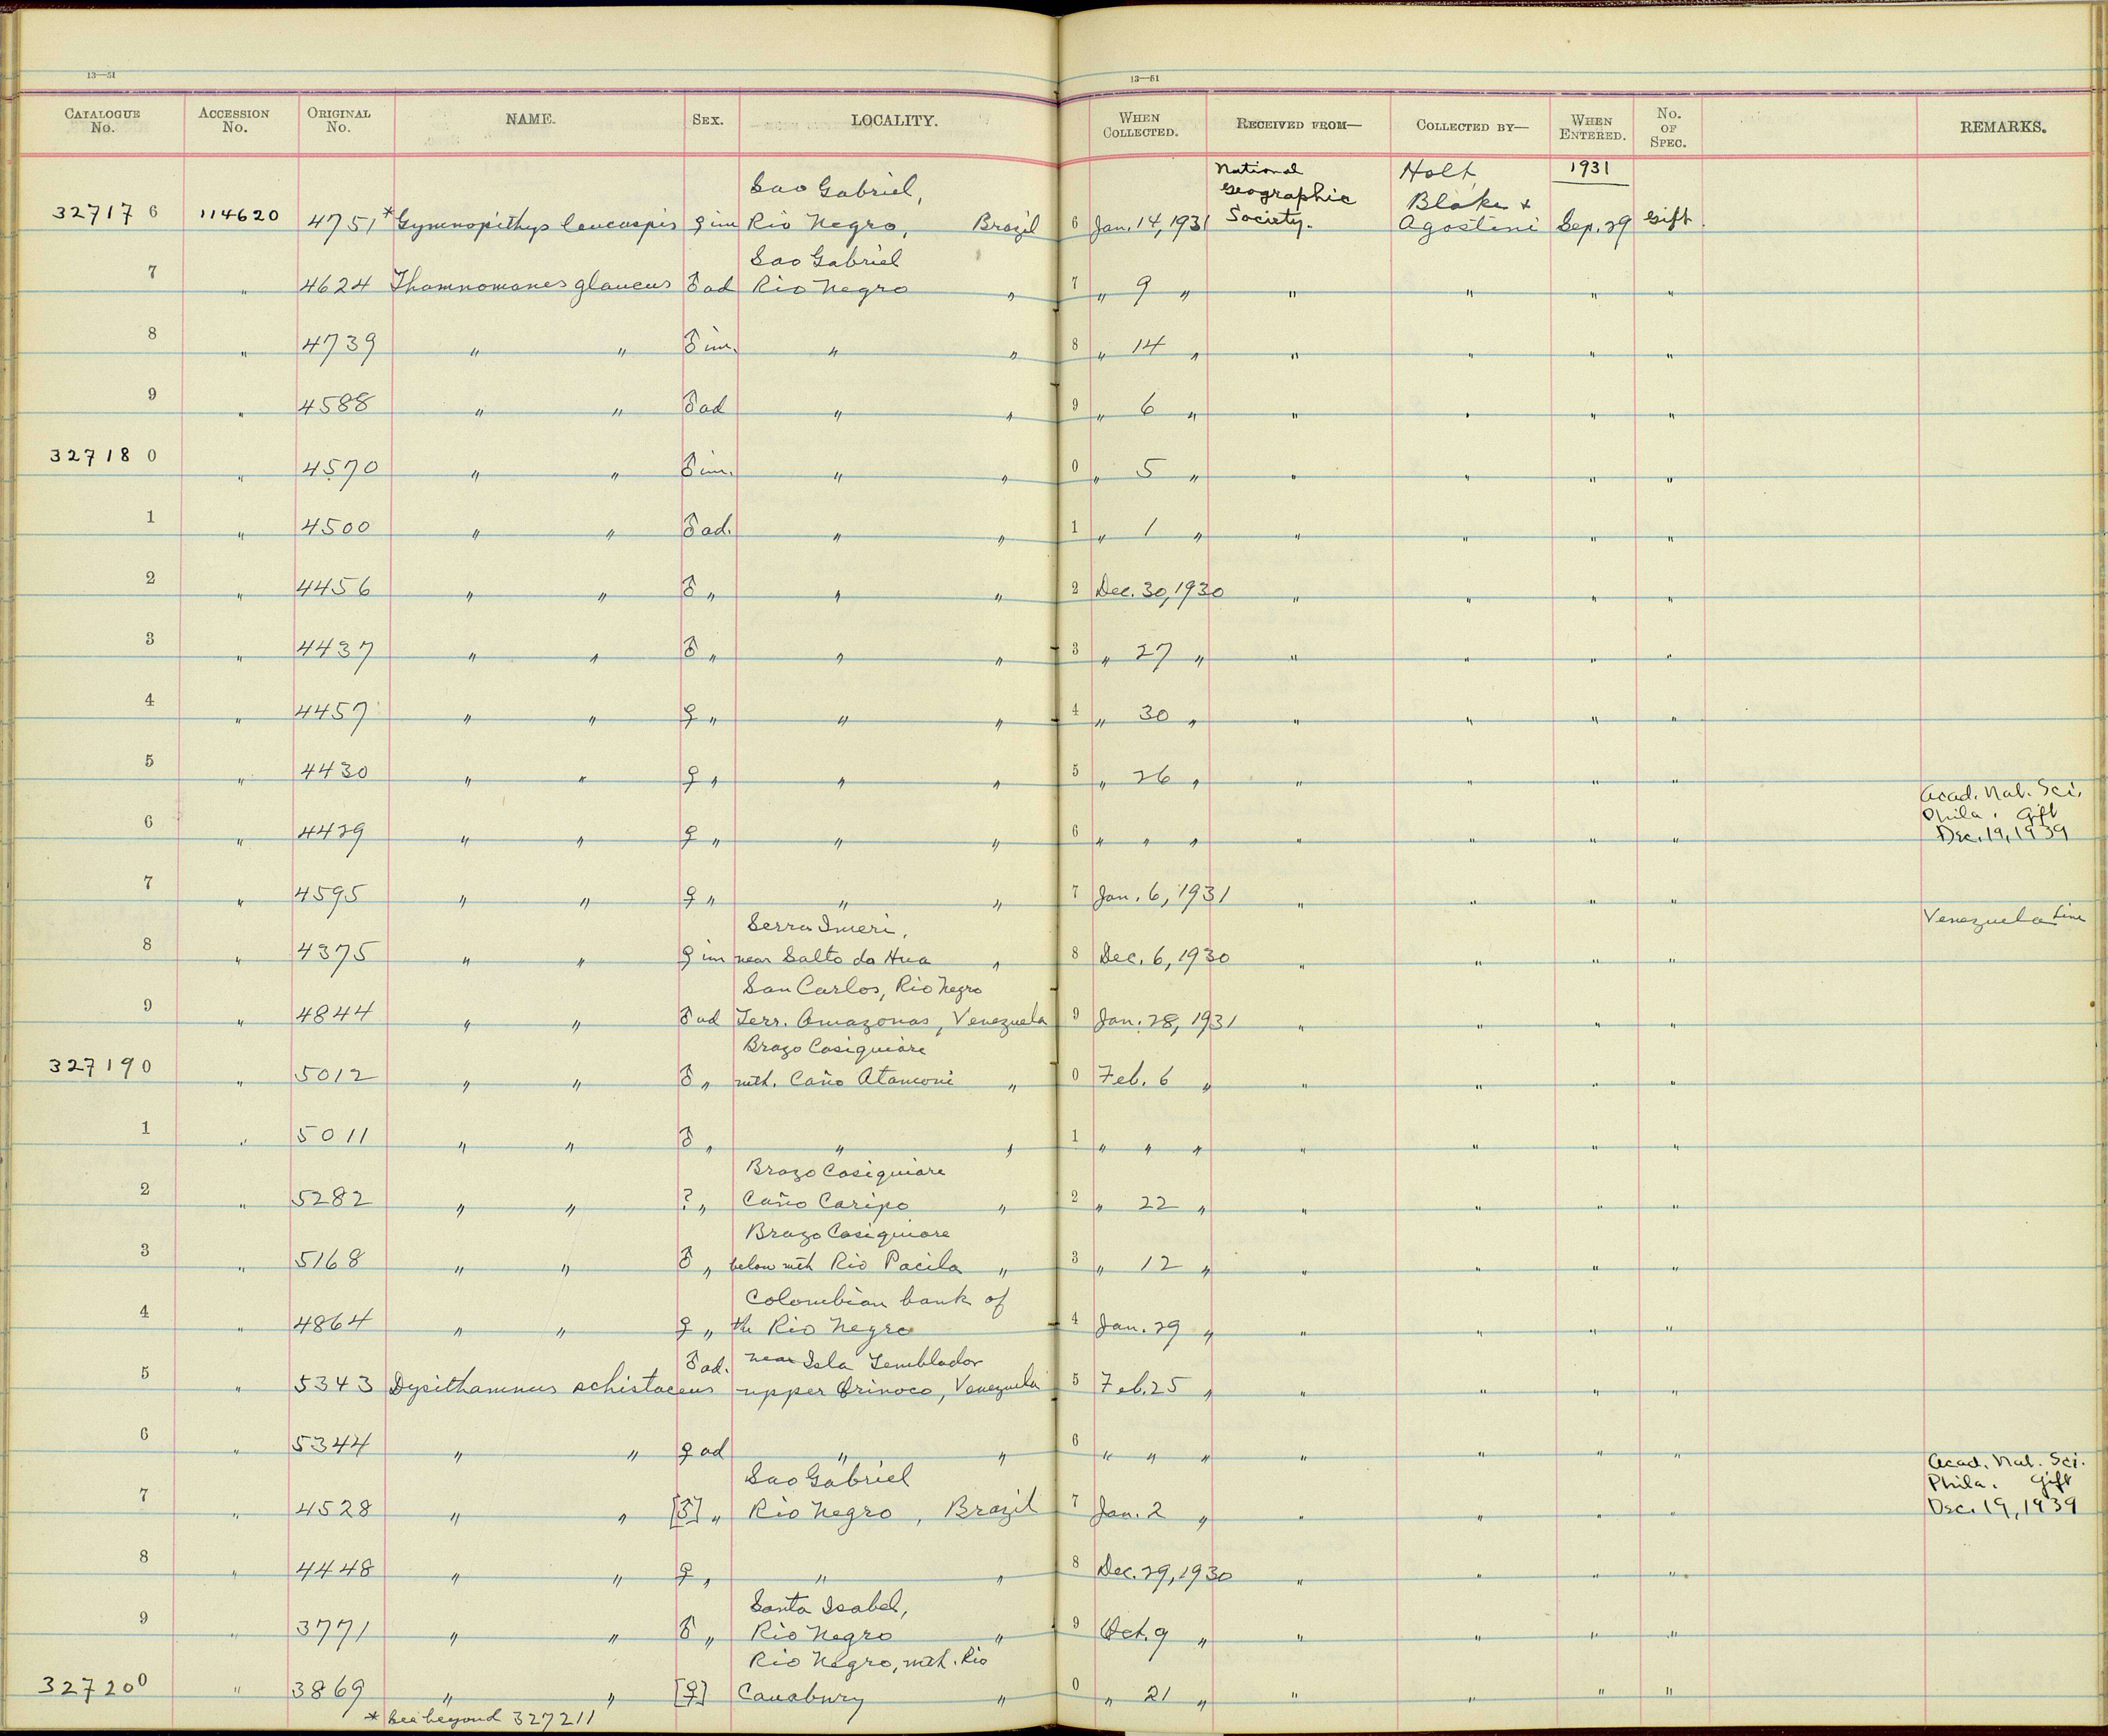 13—51 13—51
CATALOGUE No. ACCESSION No. ORIGINAL No. NAME. SEX. LOCALITY. WHEN COLLECTED. RECEIVED FROM— COLLECTED BY— WHEN ENTERED. No. OF SPEC. REMARKS.
Sao Gabriel, National Geographic Holt, 1931
32717 6 114620 4751 * Gymnopithys leucaspis ♀ im Rio Negro, Brazil 6 Jan. 14, 1931 Society. Blake + Agostini Sep. 29 Gift.
Sao Gabriel
7 " 4624 Thamnomanes glaucus ♂ ad Rio Negro " 7 " 9 " " " " "
8 " 4739 " " ♂ im. " " 8 " 14 " " " " "
9 " 4588 " " ♂ ad " " 9 " 6 " " " " "
32718 0 " 4570 " " ♂ im. " " 0 " 5 " " " " "
1 " 4500 " " ♂ ad. " " 1 " 1 " " " " "
2 " 4456 " " ♂ " " " 2 Dec. 30, 1930 " " " "
3 " 4437 " " ♂ " " " 3 " 27 " " " " "
4 " 4457 " " ♀ " " " 4 " 30 " " " " "
5 " 4430 " " ♀ " " " 5 " 26 " " " " "
Acad. Nat. Sci.
Phila. Gift
6 " 4429 " " ♀ " " " 6 " " " " " " " Dec. 19, 1939
7 " 4595 " " ♀ " " " 7 Jan. 6, 1931 " " " "
Serra Imeri, Venezuela Line
8 " 4375 " " ♀ im near Salto do Hua " 8 Dec. 6, 1930 " " " "
San Carlos, Rio Negro
9 " 4844 " " ♂ ad Terr. Amazonas, Venezuela 9 Jan. 28, 1931 " " " "
Brazo Casiquiare
327190 " 5012 " " ♂ " mth. Caño Atamoni " 0 Feb. 6 " " " " "
1 " 5011 " " ♂ " " " 1 " " " " " " "
Brazo Casiquiare
2 " 5282 " " ? " Caño Caripo " 2 " 22 " " " " "
Brazo Casiquiare
3 " 5168 " " ♂ " below mth Rio Pacila " 3 " 12 " " " " "
Colombian bank of
4 " 4864 " " ♀ " the Rio Negro 4 Jan. 29 " " " " "
♂ ad. near Isla Temblador
5 " 5343 Dysithamnus schistaceus upper Orinoco, Venezuela 5 Feb. 25 " " " " "
6 " 5344 " " ♀ ad " " 6 " " " " " " "
Sao Gabriel Acad. Nat. Sci.
Phila. Gift
7 " 4528 " " [♂] " Rio Negro, Brazil 7 Jan. 2 " " " " " Dec. 19, 1939
8 " 4448 " " ♀ " " " 8 Dec. 29, 1930 " " " "
Santa Isabel,
9 " 3771 " " ♂ " Rio Negro " 9 Oct. 9 " " " " "
Rio Negro, mth. Rio
327200 " 3869 " " [♀] Cauabury " 0 " 21 " " " " "
* See beyond 327211